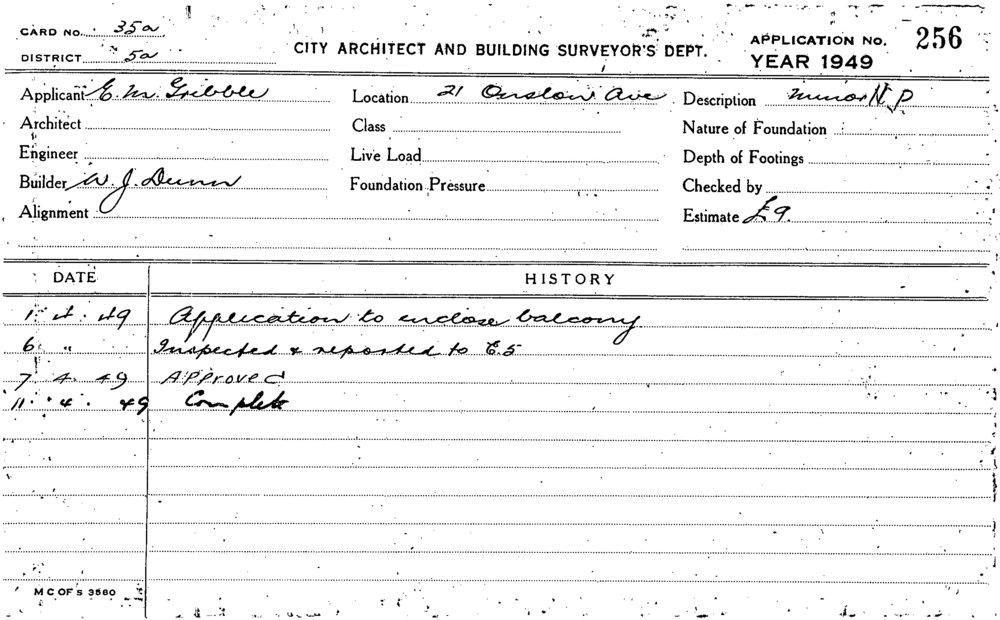 CARD NO. 35a
DISTRICT 5a
CITY ARCHITECT AND BUILDING SURVEYOR'S DEPT.
APPLICATION NO. 256
YEAR 1949
Applicant E. M. Gribble Location 21 Onslow Ave Description minor N P
Architect Class Nature of Foundation
Engineer Live Load Depth of Footings
Builder W. J. Dunn Foundation Pressure Checked by
Alignment Estimate £9.
DATE HISTORY
1. 4. 49 Application to enclose balcony
6. " Inspected & reported to E.5
7 4. 49 Approved
11. 4. 49 Complete
M C OF S 3560